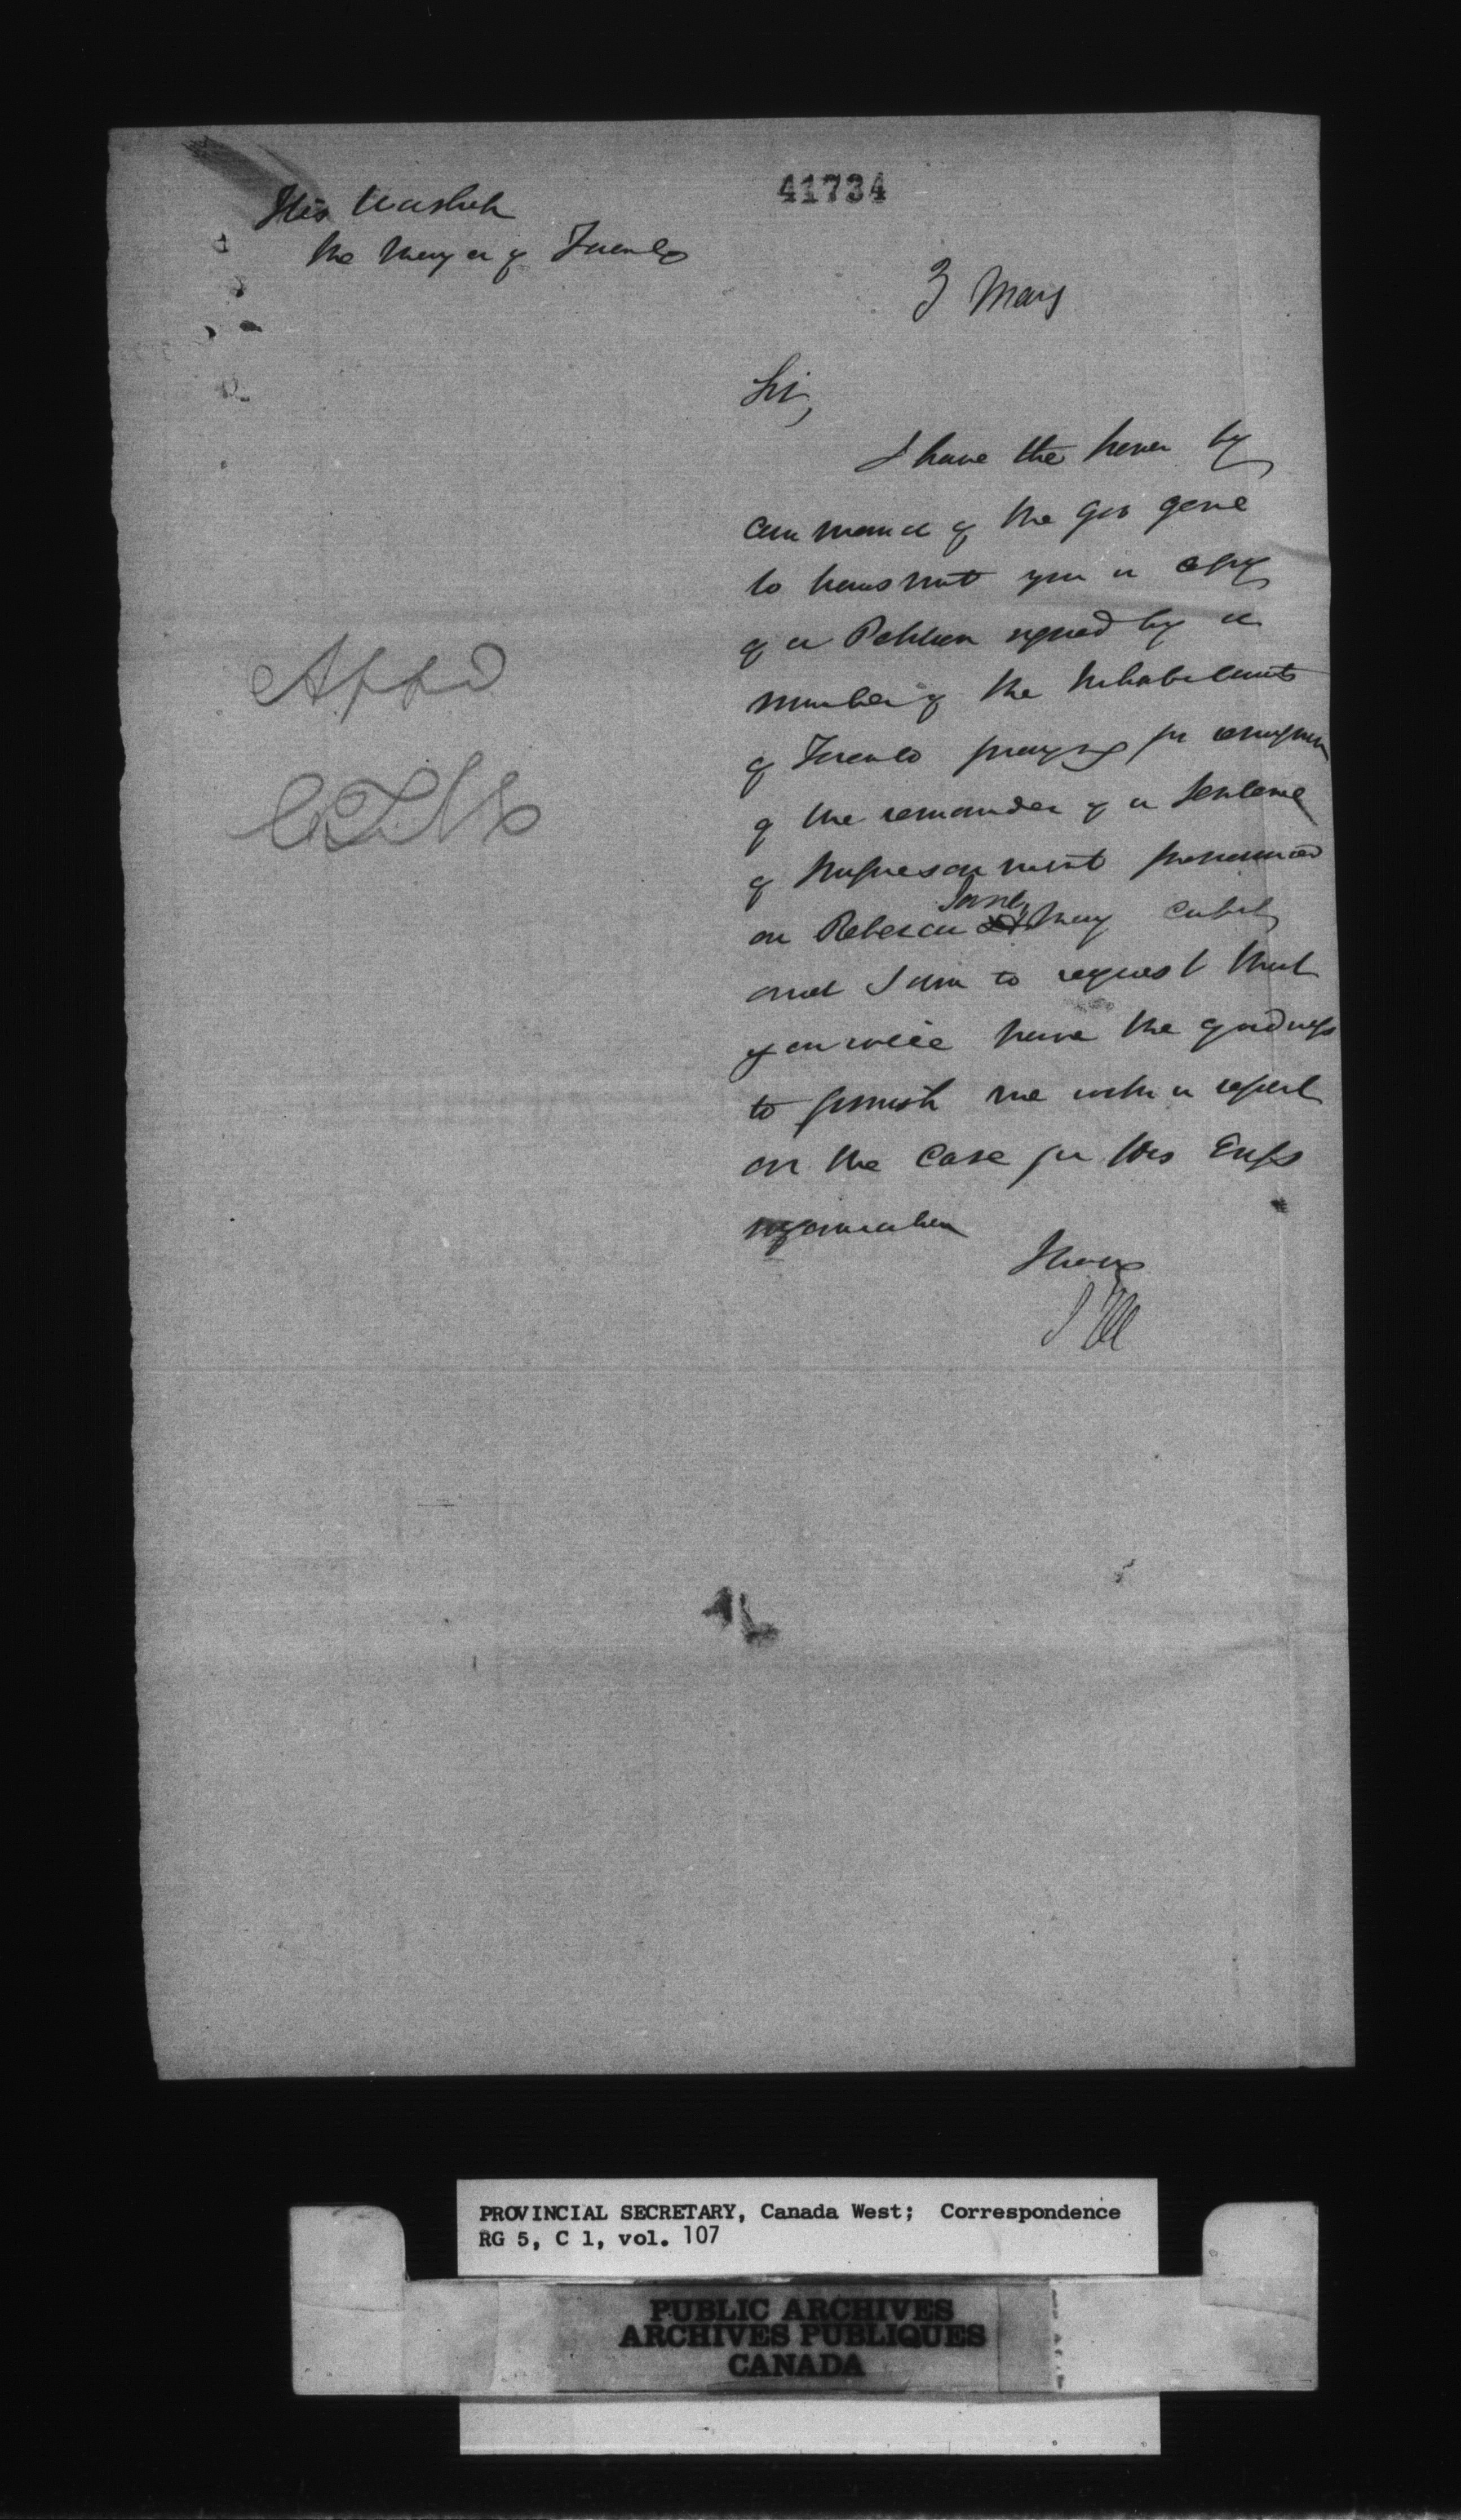 41734
His Worship
The Mayor of Toronto
3 May
Sir,
I have the honor by
command of the Gov Genl
to transmit you a copy
of a Petition signed by a
number of the Inhabitants
of Toronto praying for remission
of the remainder of a sentence
of Imprisonment pronounced
on Rebecca Jane May
and I am to request that
you will have the goodness
to furnish me with a report
on the case for His Excys
information
I have
Appd
PROVINCIAL SECRETARY, Canada West; Correspondence
RG 5, C 1, vol. 107
PUBLIC ARCHIVES
ARCHIVES PUBLIQUES
CANADA